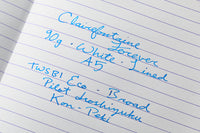 Clairefontaine
forever
90g · White · Lined
A5
TWSBI Eco · Broad
Pilot iroshizuku
Kon · Peki